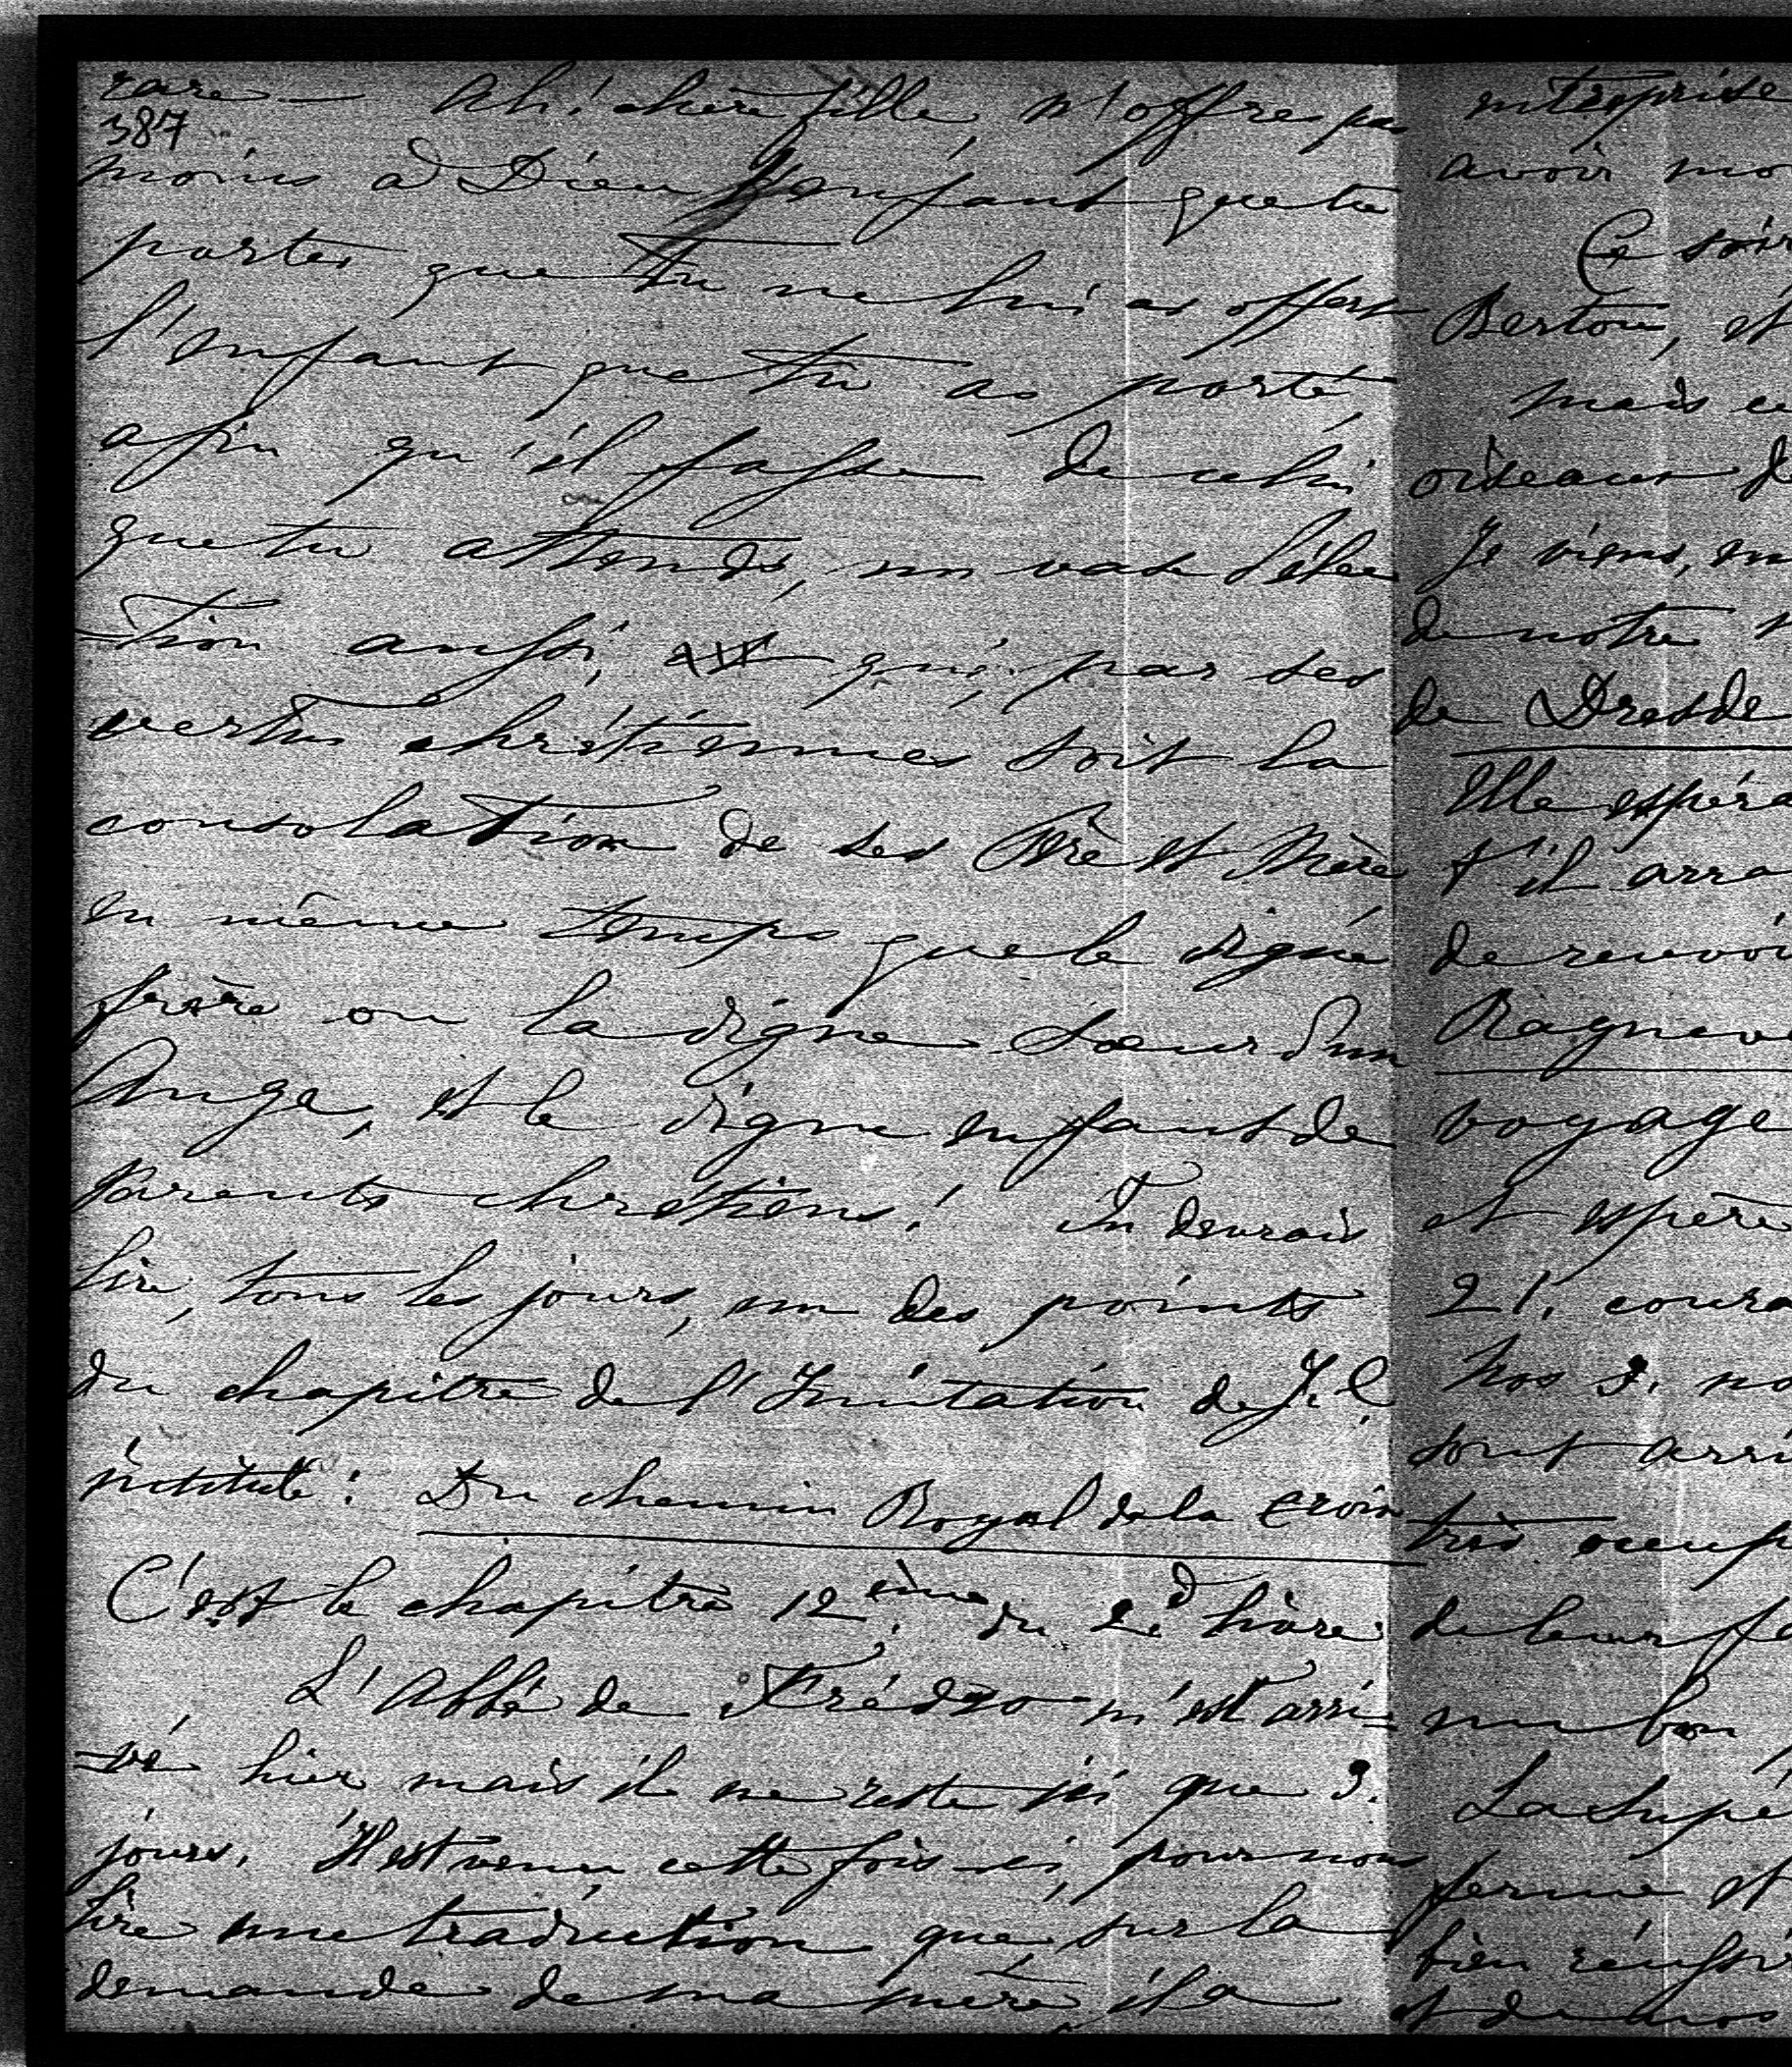 rare — Ah! chère fille, n'offre pas
387
moins à Dieu l'enfant que tu
portes que tu ne lui as offert
l'enfant que tu as porté,
afin qu'il fasse de celui
que tu attends, un vase d'élec
-tion aussi, qui, par ses
vertus chrétiennes soit la
consolation de ses Père et Mère
en même temps que le digne
frère ou la digne Soeur d'un
Ange, et le digne enfant de
parents chrétiens! Tu devrais
lire, tous les jours, un des points
du chapitre de l'Imitation de J. C.
intitulé: Du chemin Royal de la Croix
C'est le chapitre 12ème du 2d livre.
L'Abbé de m'est arri-
-vé hier mais il ne reste ici que 3.
jours. Il est venu, cette fois-ci, pour nous
lire une traduction que, sur la
demande de ma mère, il a
entreprise
avoir mo
Ce soir
Bertou, et
mais ce
oiseaux de
Je viens, en
de notre
de Dresde
Elle espéra
s'il arra
de revoir
voyage
et espère
21. coura
Nos 3. no
sont arri
très occup
de leur fe
un bon
La Supé
ferme et
bien réussi
et de nos